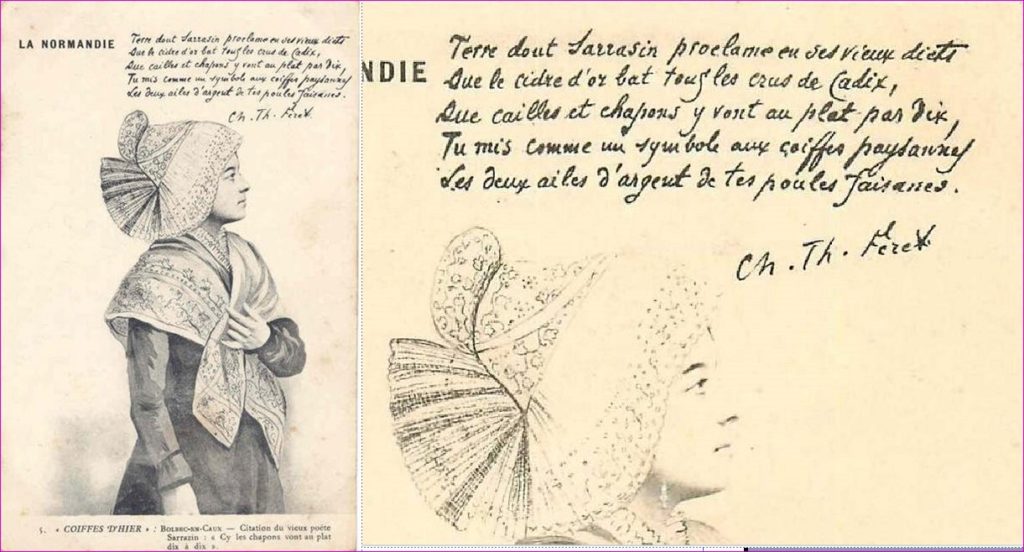 LA NORMANDIE
Terre dont Sarrasin proclame en ses vieux dicts
Que le cidre d'or bat tous les crus de Cadix,
Que cailles et chapons y vont au plat par dix,
Tu mis comme un symbole aux coiffes paysannes
Les deux ailes d'argent de tes poules faisanes.
Ch. Th. Féret
5. « COIFFES D'HIER » : BOLBEC-EN-CAUX — Citation du vieux poète
Sarrazin : « Cy les chapons vont au plat
dix à dix ».
NDIE
Terre dont Sarrasin proclame en ses vieux dicts
Que le cidre d'or bat tous les crus de Cadix,
Que cailles et chapons y vont au plat par dix,
Tu mis comme un symbole aux coiffes paysannes
Les deux ailes d'argent de tes poules faisanes.
Ch. Th. Féret